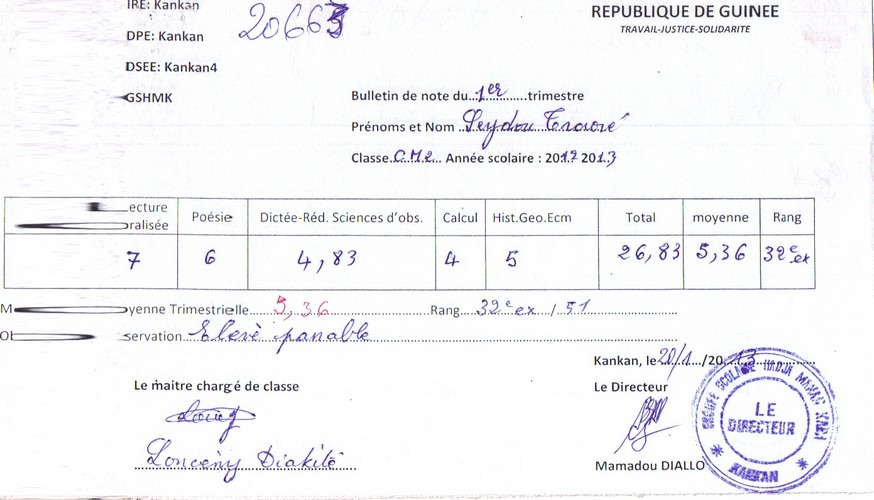 IRE: Kankan
20663
REPUBLIQUE DE GUINEE
TRAVAIL-JUSTICE-SOLIDARITE
DPE: Kankan
DSEE: Kankan4
GSHMK
Bulletin de note du...1er...........trimestre
Prénoms et Nom ..Seydou Traoré
Classe.CM2... Année scolaire : 2012 2013
ecture oralisée Poésie Dictée-Réd. Sciences d'obs. Calcul Hist.Geo.Ecm Total moyenne Rang
7 6 4,83 4 5 26,83 5,36 32e ex
Moyenne Trimestrielle.......5,36 Rang....32e ex / 51
Observation Elevè
Kankan, le 20/1 /20 13
Le maitre chargé de classe
Le Directeur
Lonceny Diakité
Mamadou DIALLO
GROUPE SCOLAIRE HADJA
LE DIRECTEUR
KANKAN